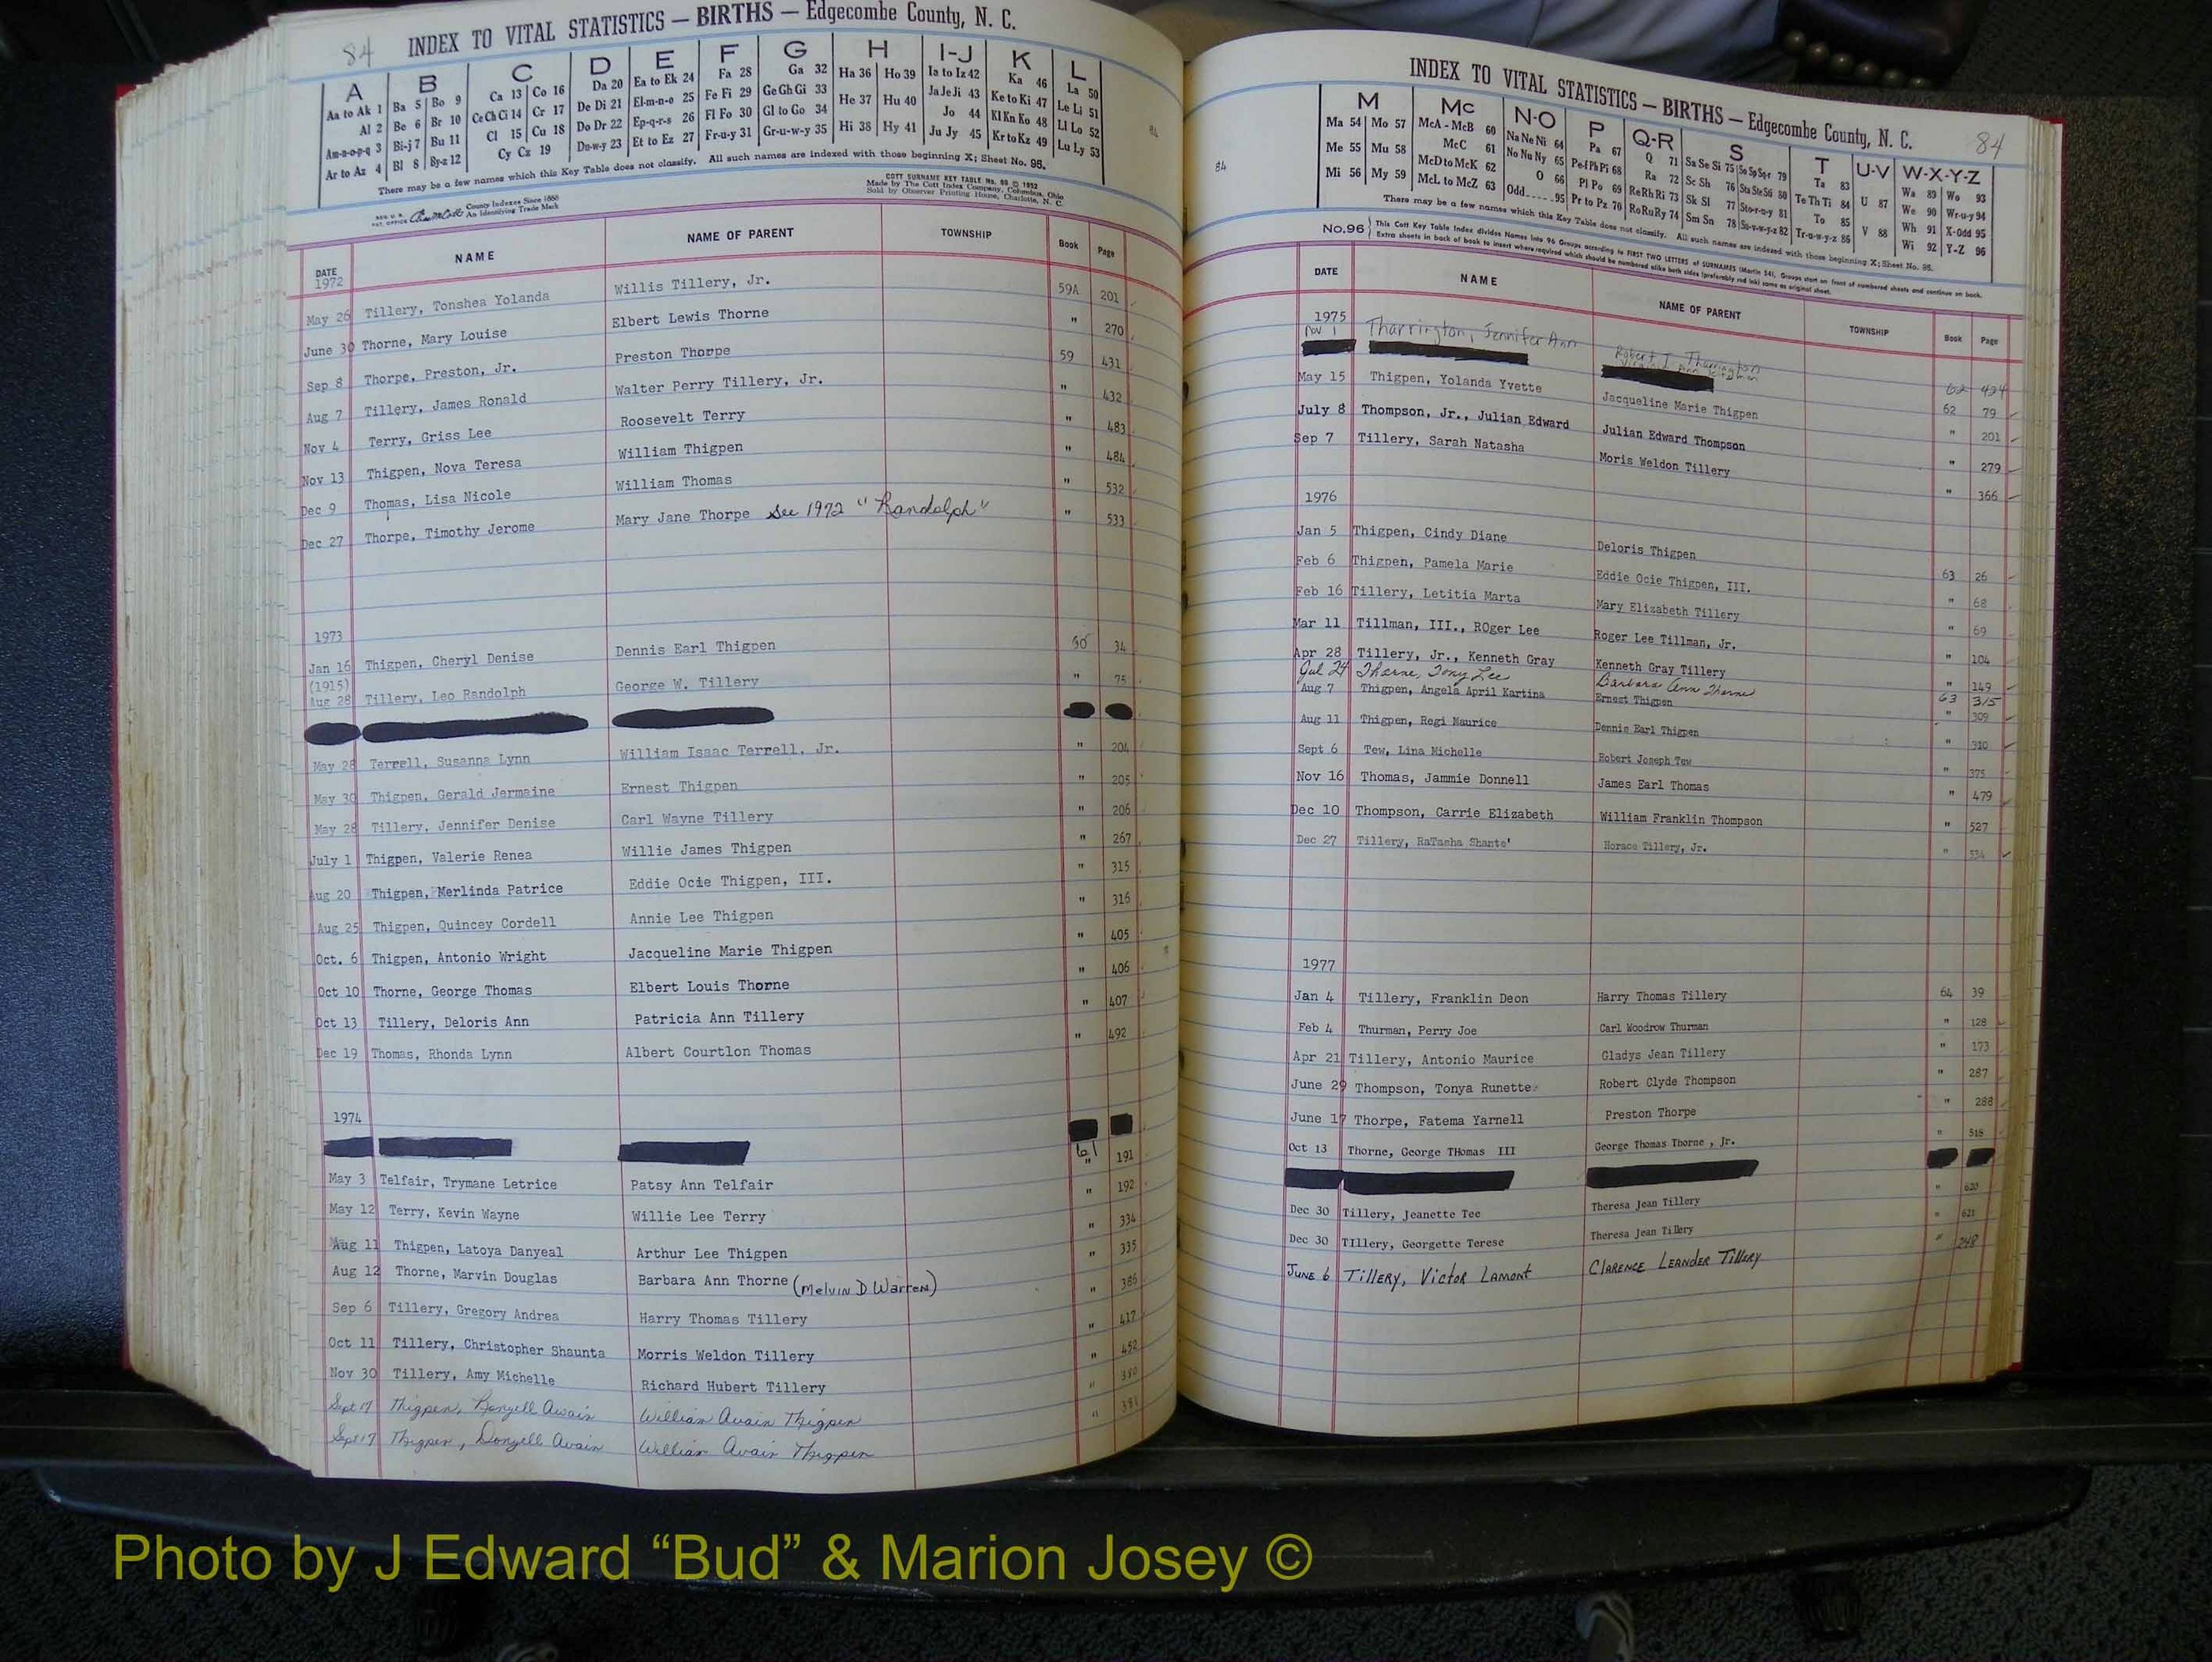 84 INDEX TO VITAL STATISTICS — BIRTHS — Edgecombe County, N. C.
A B C D E F G H I-J K L
Aa to Ak 1 Ba 5 Bo 9 Ca 13 Co 16 Da 20 Ea to Ek 24 Fa 28 Ga 32 Ha 36 Ho 39 Ia to Iz 42 Ka 46 La 50
Al 2 Be 6 Br 10 Ce Ch Ci 14 Cr 17 De Di 21 El-m-n-o 25 Fe Fi 29 Ge Gh Gi 33 He 37 Hu 40 Ja Je Ji 43 Ke to Ki 47 Le Li 51
Am-n-o-p-q 3 Bi-j 7 Bu 11 Cl 15 Cu 18 Do Dr 22 Ep-q-r-s 26 Fl Fo 30 Gl to Go 34 Hi 38 Hy 41 Jo 44 Kl Kn Ko 48 Ll Lo 52
Ar to Az 4 Bl 8 By-z 12 Cy Cz 19 Du-w-y 23 Et to Ez 27 Fr-u-y 31 Gr-u-w-y 35 Ju Jy 45 Kr to Kz 49 Lu Ly 53
There may be a few names which this Key Table does not classify. All such names are indexed with those beginning X; Sheet No. 96.
County Indexes Since 1888
An Identifying Trade Mark
COTT SURNAME KEY TABLE No. 96 © 1952
Made by The Cott Index Company, Columbus, Ohio
Sold by Observer Printing House, Charlotte, N. C.
84
DATE NAME NAME OF PARENT TOWNSHIP Book Page
1972
May 26 Tillery, Tonshea Yolanda Willis Tillery, Jr. 59A 201
June 30 Thorne, Mary Louise Elbert Lewis Thorne " 270
Sep 8 Thorpe, Preston, Jr. Preston Thorpe 59 431
Aug 7 Tillery, James Ronald Walter Perry Tillery, Jr. " 432
Nov 4 Terry, Griss Lee Roosevelt Terry " 483
Nov 13 Thigpen, Nova Teresa William Thigpen " 484
Dec 9 Thomas, Lisa Nicole William Thomas " 532
Dec 27 Thorpe, Timothy Jerome Mary Jane Thorpe See 1972 "Randolph" " 533
1973
Jan 16 Thigpen, Cheryl Denise Dennis Earl Thigpen 34
(1915)
Aug 28 Tillery, Leo Randolph George W. Tillery " 75
May 28 Terrell, Susanna Lynn William Isaac Terrell, Jr. " 204
May 30 Thigpen, Gerald Jermaine Ernest Thigpen " 205
May 28 Tillery, Jennifer Denise Carl Wayne Tillery " 206
July 1 Thigpen, Valerie Renea Willie James Thigpen " 267
Aug 20 Thigpen, Merlinda Patrice Eddie Ocie Thigpen, III. " 315
Aug 25 Thigpen, Quincey Cordell Annie Lee Thigpen " 316
Oct. 6 Thigpen, Antonio Wright Jacqueline Marie Thigpen " 405
Oct 10 Thorne, George Thomas Elbert Louis Thorne " 406
Oct 13 Tillery, Deloris Ann Patricia Ann Tillery " 407
Dec 19 Thomas, Rhonda Lynn Albert Courtlon Thomas " 492
1974
61
May 3 Telfair, Trymane Letrice Patsy Ann Telfair " 191
May 12 Terry, Kevin Wayne Willie Lee Terry " 192
Aug 11 Thigpen, Latoya Danyeal Arthur Lee Thigpen " 334
Aug 12 Thorne, Marvin Douglas Barbara Ann Thorne (Melvin D Warren) " 335
Sep 6 Tillery, Gregory Andrea Harry Thomas Tillery " 386
Oct 11 Tillery, Christopher Shaunta Morris Weldon Tillery " 417
Nov 30 Tillery, Amy Michelle Richard Hubert Tillery " 452
Sept 17 Thigpen, Ronyell Avain William Avain Thigpen " 380
Sept 17 Thigpen, Donyell Avain William Avain Thigpen " 381
INDEX TO VITAL STATISTICS — BIRTHS — Edgecombe County, N. C. 84
M Mc N-O P Q-R S T U-V W-X-Y-Z
Ma 54 Mo 57 McA - McB 60 Na Ne Ni 64 Pa 67 Q 71 Sa Se Si 75 So Sp Sq-r 79 Ta 83 U 87 Wa 89 Wo 93
Me 55 Mu 58 McC 61 No Nu Ny 65 Pe-f Ph Pi 68 Ra 72 Sc Sh 76 Sta Ste Sti 80 Te Th Ti 84 V 88 We 90 Wr-u-y 94
Mi 56 My 59 McD to McK 62 O 66 Pl Po 69 Re Rh Ri 73 Sk Sl 77 Sto-r-u-y 81 To 85 Wh 91 X-Odd 95
McL to McZ 63 Odd 95 Pr to Pz 70 Ro Ru Ry 74 Sm Sn 78 Su-v-w-y-z 82 Tr-u-w-y-z 86 Wi 92 Y-Z 96
84
There may be a few names which this Key Table does not classify. All such names are indexed with those beginning X; Sheet No. 96.
No.96 This Cott Key Table Index divides Names into 96 Groups according to FIRST TWO LETTERS of SURNAMES (Martin 54). Groups start on front of numbered sheets and continue on back.
Extra sheets in back of book to insert where required which should be numbered alike both sides (preferably red ink) same as original sheet.
DATE NAME NAME OF PARENT TOWNSHIP Book Page
1975
Nov 1 Tharrington, Jennifer Ann Robert T. Tharrington 62 494
May 15 Thigpen, Yolanda Yvette Jacqueline Marie Thigpen 62 79
July 8 Thompson, Jr., Julian Edward Julian Edward Thompson " 201
Sep 7 Tillery, Sarah Natasha Moris Weldon Tillery " 279
" 366
1976
Jan 5 Thigpen, Cindy Diane Deloris Thigpen 63 26
Feb 6 Thigpen, Pamela Marie Eddie Ocie Thigpen, III. " 68
Feb 16 Tillery, Letitia Marta Mary Elizabeth Tillery " 69
Mar 11 Tillman, III., ROger Lee Roger Lee Tillman, Jr. " 104
Apr 28 Tillery, Jr., Kenneth Gray Kenneth Gray Tillery " 149
Jul 24 Thorne, Tony Lee Barbara Ann Thorne 63 315
Aug 7 Thigpen, Angela April Kartina Ernest Thigpen " 309
Aug 11 Thigpen, Regi Maurice Dennis Earl Thigpen " 310
Sept 6 Tew, Lina Michelle Robert Joseph Tew " 375
Nov 16 Thomas, Jammie Donnell James Earl Thomas " 479
Dec 10 Thompson, Carrie Elizabeth William Franklin Thompson " 527
Dec 27 Tillery, RaTasha Shante' Horace Tillery, Jr. " 534
1977
Jan 4 Tillery, Franklin Deon Harry Thomas Tillery 64 39
Feb 4 Thurman, Perry Joe Carl Woodrow Thurman " 128
Apr 21 Tillery, Antonio Maurice Gladys Jean Tillery " 173
June 29 Thompson, Tonya Runette Robert Clyde Thompson " 287
June 17 Thorpe, Fatema Yarnell Preston Thorpe " 288
Oct 13 Thorne, George THomas III George Thomas Thorne , Jr. " 518
Dec 30 Tillery, Jeanette Tee Theresa Jean Tillery " 620
Dec 30 TIllery, Georgette Terese Theresa Jean Tillery " 621
June 6 Tillery, Victor Lamont Clarence Leander Tillery " 248
Photo by J Edward “Bud” & Marion Josey ©